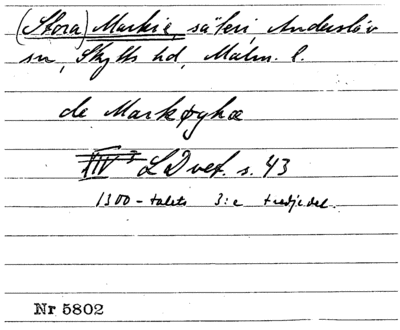 (Stora) Markie, säteri, Anderslöv
sn, Skytts hd, Malm. l.
de Markøghæ
XIV 3 LDvet. s. 43
1300-talets 3:e tredjedel.
Nr 5802